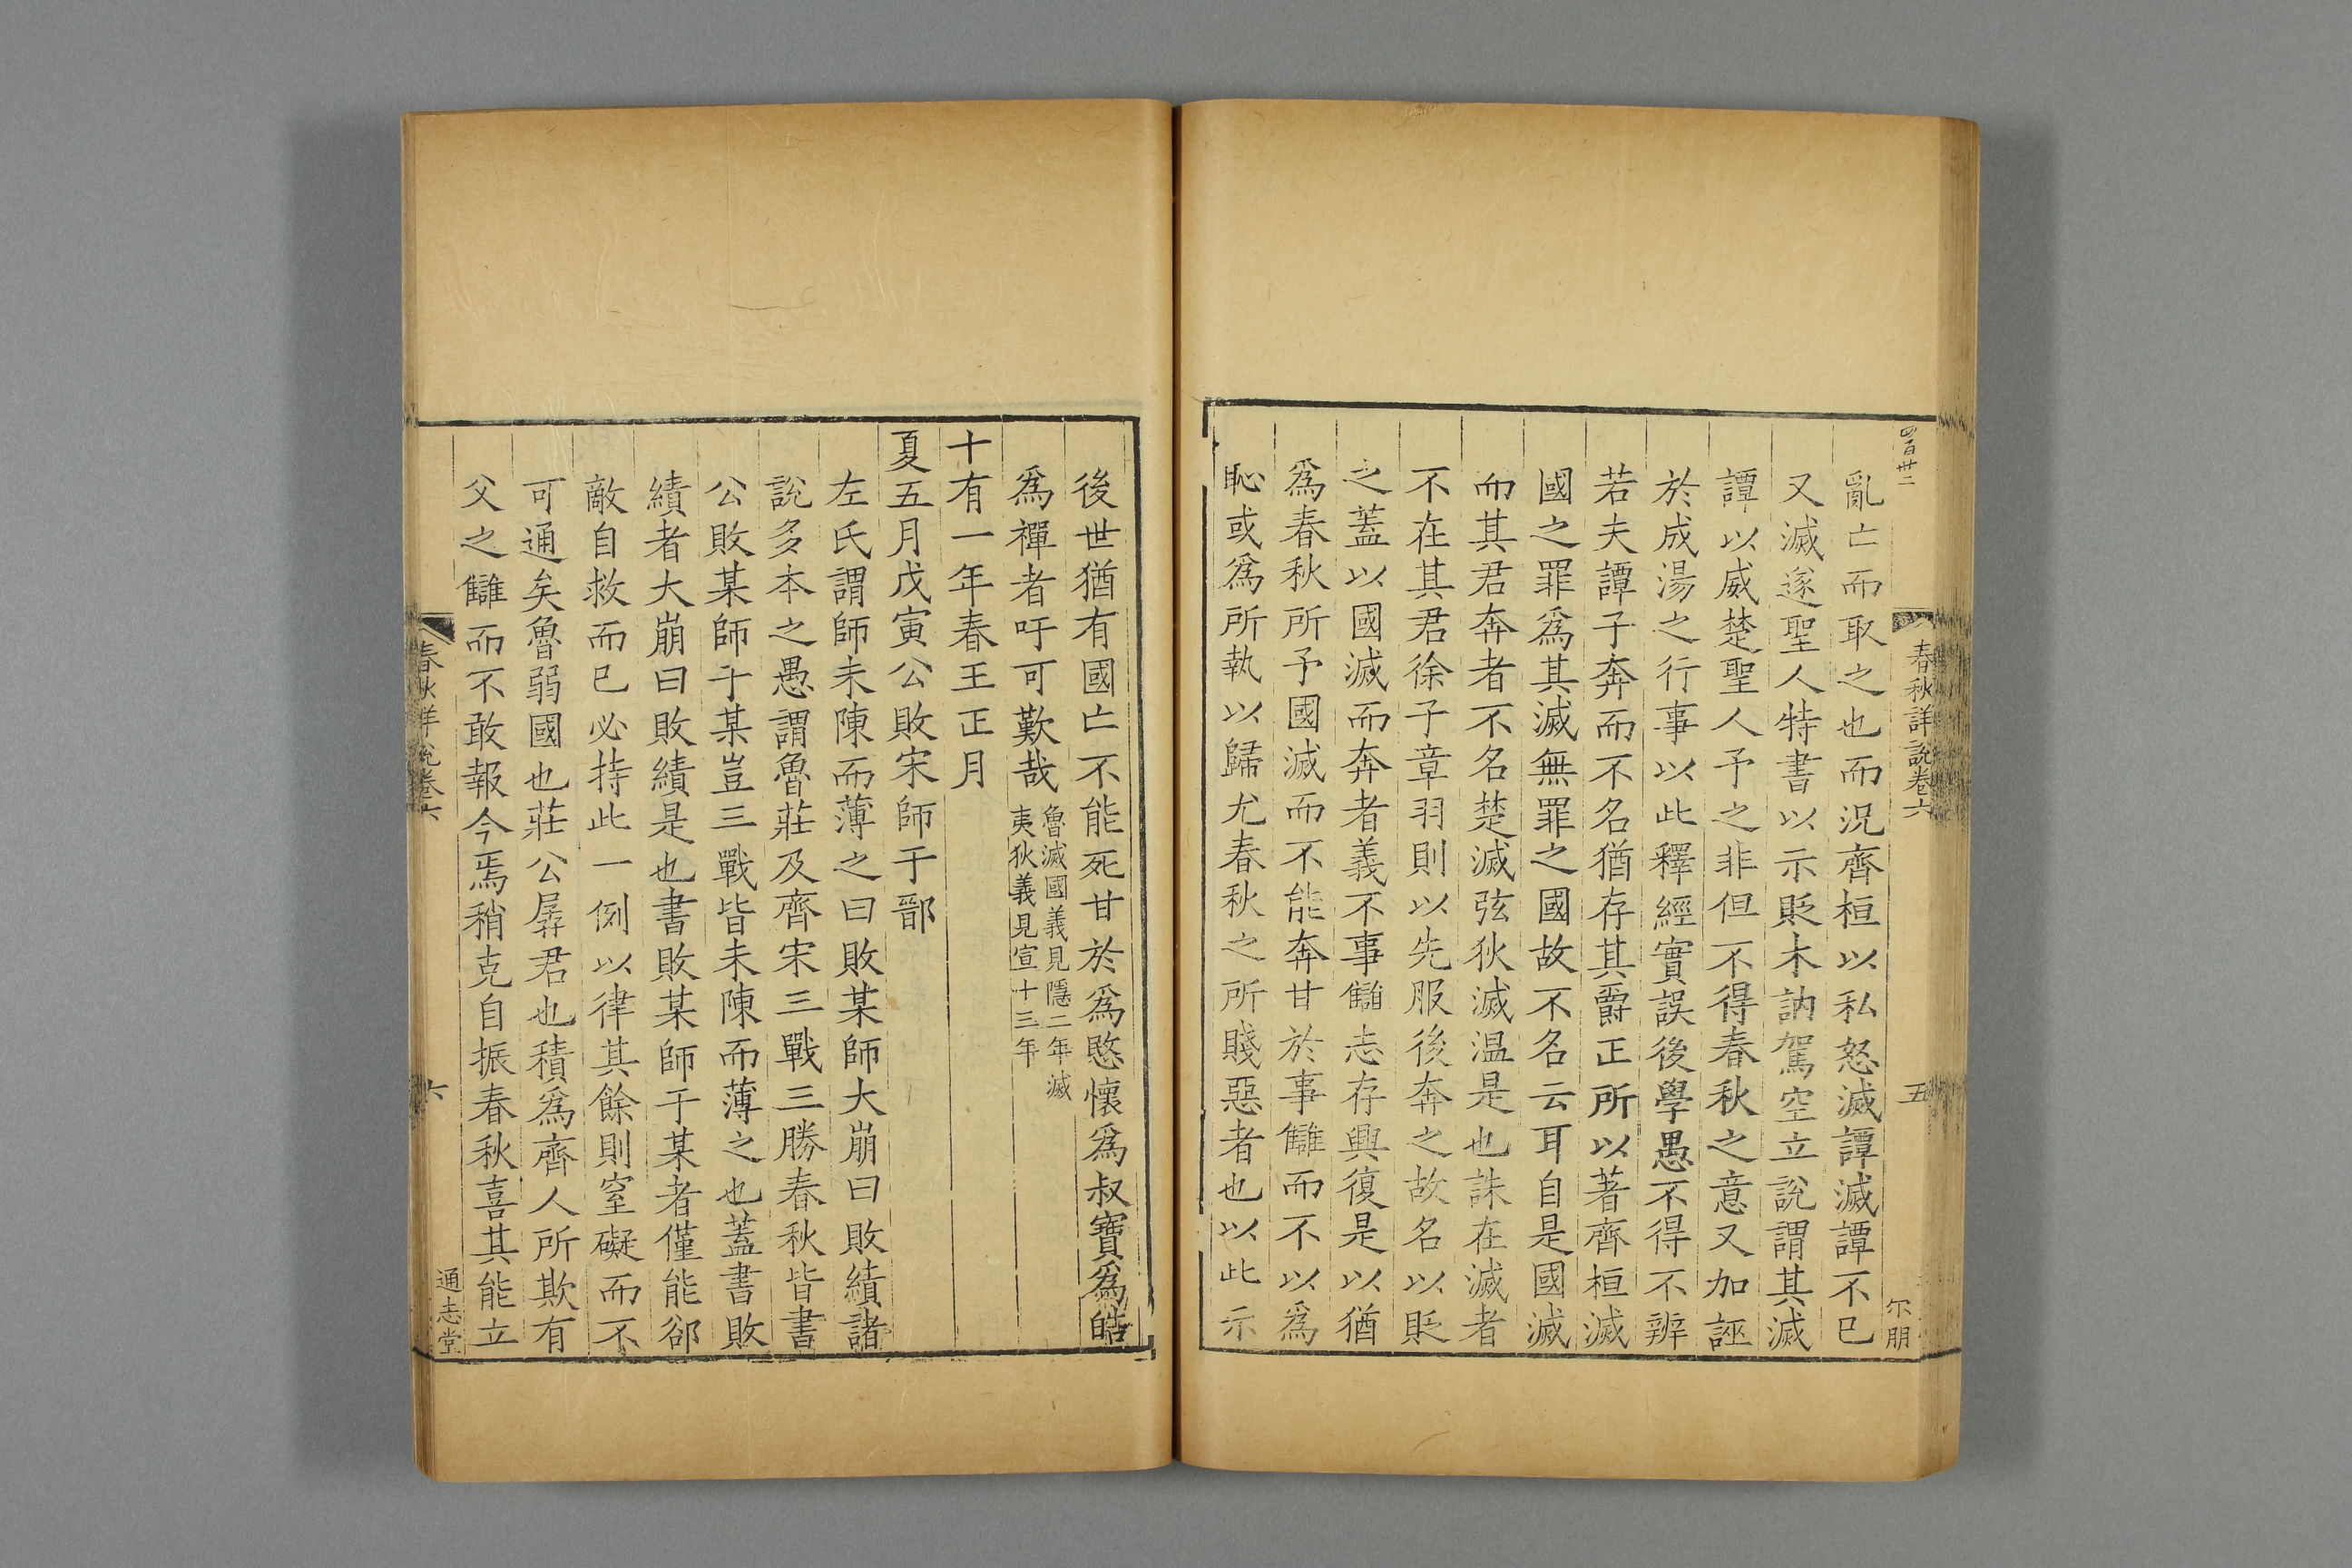 四百卅二
春秋詳說卷六
五
尔朋
亂亡而取之也而況齊桓以私怒滅譚滅譚不已
又滅遂聖人特書以示貶木訥駕空立說謂其滅
譚以威楚聖人予之非但不得春秋之意又加誣
於成湯之行事以此釋經實誤後學愚不得不辨
若夫譚子奔而不名猶存其爵正所以著齊桓滅
國之罪爲其滅無罪之國故不名云耳自是國滅
而其君奔者不名楚滅弦狄滅温是也誅在滅者
不在其君徐子章羽則以先服後奔之故名以貶
之蓋以國滅而奔者義不事讎志存興復是以猶
爲春秋所予國滅而不能奔甘於事讎而不以爲
恥或爲所執以歸尤春秋之所賤惡者也以此示
後世猶有國亡不能死甘於爲愍懷爲叔寶爲皓
爲禪者吁可歎哉
魯滅國義見隱二年滅
夷狄義見宣十三年
十有一年春王正月
夏五月戊寅公敗宋師于鄑
左氏謂師未陳而薄之曰敗某師大崩曰敗績諸
說多本之愚謂魯莊及齊宋三戰三勝春秋皆書
公敗某師于某豈三戰皆未陳而薄之也蓋書敗
績者大崩曰敗績是也書敗某師于某者僅能郤
敵自救而已必持此一例以律其餘則窒礙而不
可通矣魯弱國也莊公孱君也積爲齊人所欺有
父之讎而不敢報今焉稍克自振春秋喜其能立
春秋詳說卷六
六
通志堂